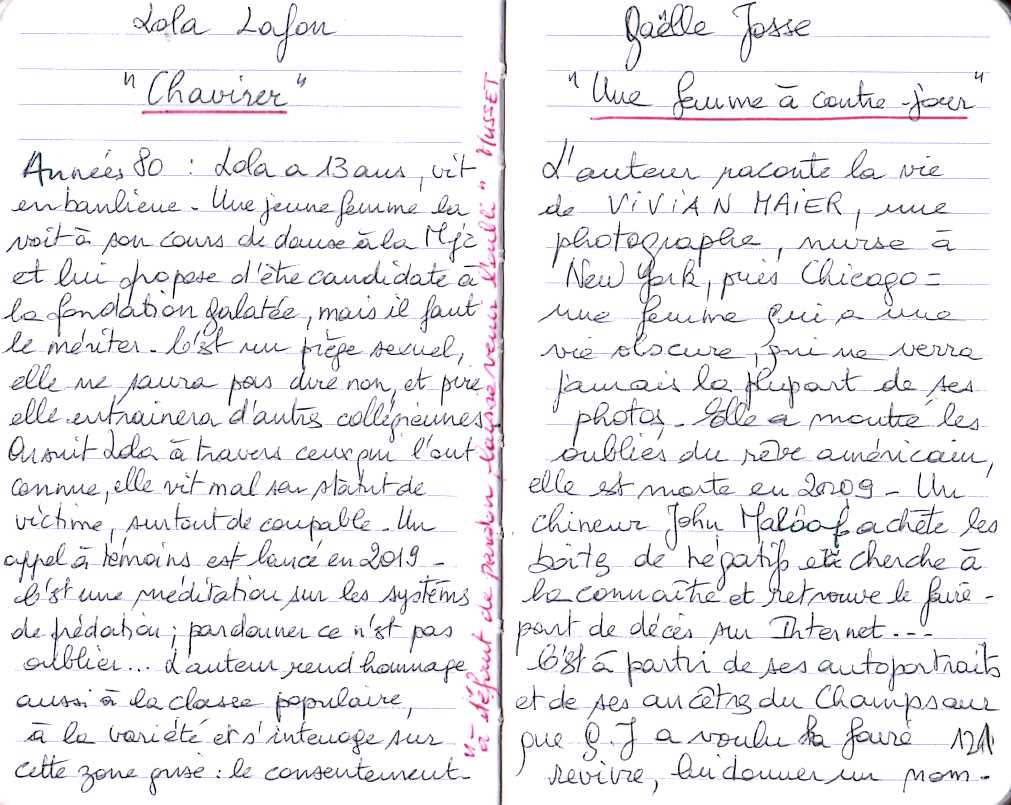 Lola Lafon
"Chavirer"
Années 80 : Lola a 13 ans, vit
en banlieue - Une jeune femme la
voit à son cours de danse à la Mjc
et lui propose d'être candidate à
la fondation galatée, mais il faut
le mériter - C'est un piège sexuel,
elle ne saura pas dire non, et pire
elle entrainera d'autres collégiennes
On suit Lola à travers ceux qui l'ont
connue, elle vit mal son statut de
victime, surtout de coupable - Un
appel à témoins est lancé en 2019 -
C'est une méditation sur les systèms
de prédation ; pardonner ce n'est pas
oublier... L'auteur rend hommage
aussi à la classe populaire,
à la variété et s'interroge sur
cette zone grise : le consentement -
"à défaut de pardon laisse venir l'oubli" MUSSET
Gaëlle Josse
"Une femme à contre-jour"
L'auteur raconte la vie
de ViViAN MAIER, une
photographe, nurse à
New York, puis Chicago =
une femme qui a une
vie obscure, qui ne verra
jamais la plupart de ses
photos - Elle a montré les
oubliés du rêve américain,
elle est morte en 2009 - Un
chineur John Maloof achète les
boîtes de négatifs et cherche à
la connaître et retrouve le faire-
part de décès sur Internet...
C'est à partir de ses autoportraits
et de ses ancêtres du Champsaur
que G. J a voulu la faire
revivre, lui donner un nom -
121